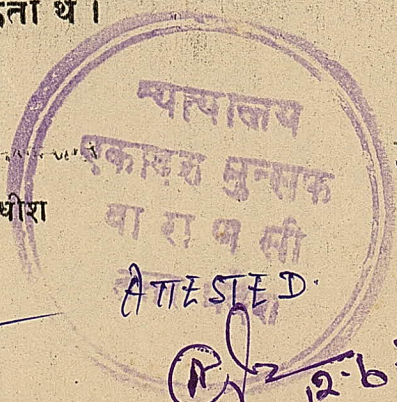 ता थे ।
न्यायालय
एकादश मुन्सफ
धीश
वा रा ण सी
ATTESTED.
12-6